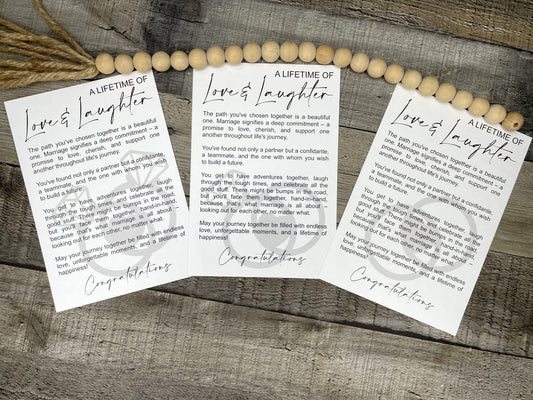 A LIFETIME OF
Love & Laughter
The path you've chosen together is a beautiful
one. Marriage signifies a deep commitment – a
promise to love, cherish, and support one
another throughout life's journey.
You've found not only a partner but a confidante,
a teammate, and the one with whom you wish
to build a future.
You get to have adventures together, laugh
through the tough times, and celebrate all the
good stuff. There might be bumps in the road,
but you'll face them together, hand-in-hand,
because that's what marriage is all about –
looking out for each other, no matter what.
May your journey together be filled with endless
love, unforgettable moments, and a lifetime of
happiness!
Congratulations
A LIFETIME OF
Love & Laughter
The path you've chosen together is a beautiful
one. Marriage signifies a deep commitment – a
promise to love, cherish, and support one
another throughout life's journey.
You've found not only a partner but a confidante,
a teammate, and the one with whom you wish
to build a future.
You get to have adventures together, laugh
through the tough times, and celebrate all the
good stuff. There might be bumps in the road,
but you'll face them together, hand-in-hand,
because that's what marriage is all about –
looking out for each other, no matter what.
May your journey together be filled with endless
love, unforgettable moments, and a lifetime of
happiness!
Congratulations
A LIFETIME OF
Love & Laughter
The path you've chosen together is a beautiful
one. Marriage signifies a deep commitment – a
promise to love, cherish, and support one
another throughout life's journey.
You've found not only a partner but a confidante,
a teammate, and the one with whom you wish
to build a future.
You get to have adventures together, laugh
through the tough times, and celebrate all the
good stuff. There might be bumps in the road,
but you'll face them together, hand-in-hand,
because that's what marriage is all about –
looking out for each other, no matter what.
May your journey together be filled with endless
love, unforgettable moments, and a lifetime of
happiness!
Congratulations